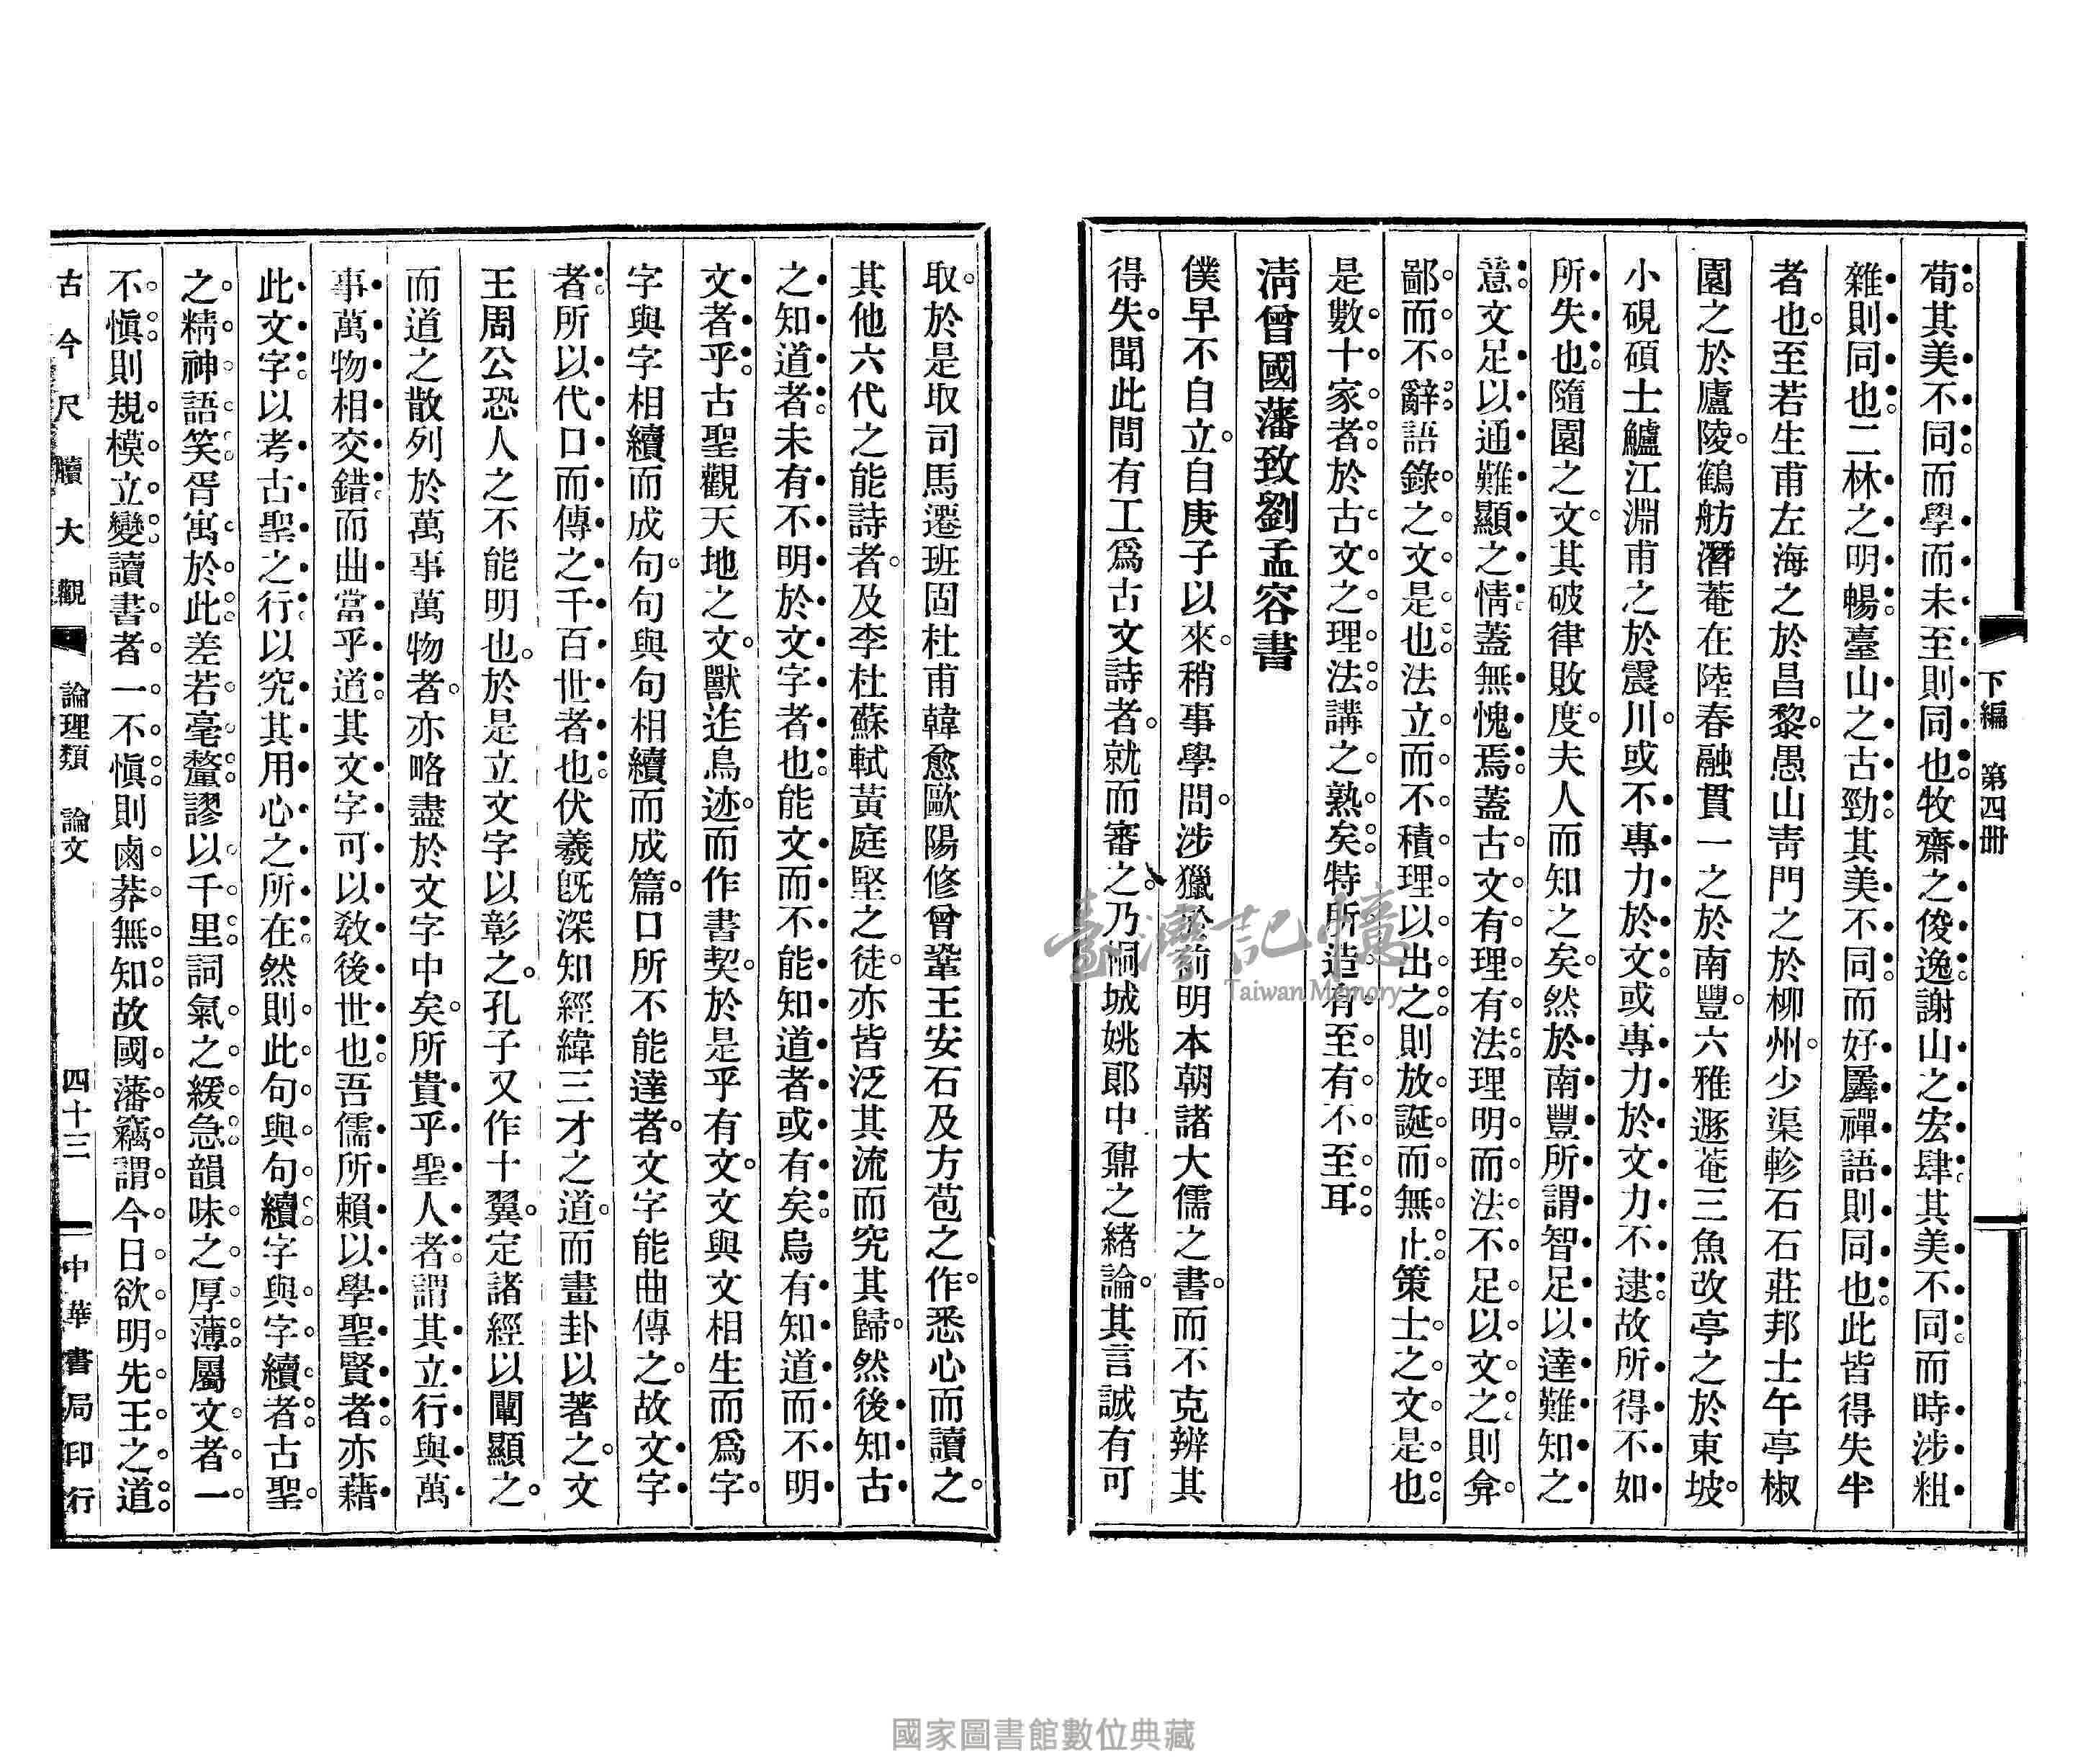 下編　第四册
荀其美不同而學而未至則同也牧齋之俊逸謝山之宏肆其美不同而時涉粗
雜則同也二林之明暢臺山之古勁其美不同而好羼禪語則同也此皆得失半
者也至若生甫左海之於昌黎愚山靑門之於柳州少渠軫石石莊邦士午亭椒
園之於廬陵鶴舫潛菴在陸春融貫一之於南豐六雅遯菴三魚改亭之於東坡
小硯碩士鱸江淵甫之於震川或不專力於文或專力於文力不逮故所得不如
所失也隨園之文其破律敗度夫人而知之矣然於南豐所謂智足以達難知之
意文足以通難顯之情蓋無愧焉蓋古文有理有法理明而法不足以文之則弇
鄙而不辭語錄之文是也法立而不積理以出之則放誕而無止策士之文是也
是數十家者於古文之理法講之熟矣特所造有至有不至耳
淸曾國藩致劉孟容書
僕早不自立自庚子以來稍事學問涉獵於前明本朝諸大儒之書而不克辨其
得失聞此間有工爲古文詩者就而審之乃桐城姚郎中鼐之緒論其言誠有可
取於是取司馬遷班固杜甫韓愈歐陽修曾鞏王安石及方苞之作悉心而讀之
其他六代之能詩者及李杜蘇軾黃庭堅之徒亦皆泛其流而究其歸然後知古
之知道者未有不明於文字者也能文而不能知道者或有矣烏有知道而不明
文者乎古聖觀天地之文獸迮鳥迹而作書契於是乎有文文與文相生而爲字
字與字相續而成句句與句相續而成篇口所不能達者文字能曲傳之故文字
者所以代口而傳之千百世者也伏羲旣深知經緯三才之道而畫卦以著之文
王周公恐人之不能明也於是立文字以彰之孔子又作十翼定諸經以闡顯之
而道之散列於萬事萬物者亦略盡於文字中矣所貴乎聖人者謂其立行與萬
事萬物相交錯而曲當乎道其文字可以敎後世也吾儒所賴以學聖賢者亦藉
此文字以考古聖之行以究其用心之所在然則此句與句續字與字續者古聖
之精神語笑胥寓於此差若毫釐謬以千里詞氣之緩急韻味之厚薄屬文者一
不愼則規模立變讀書者一不愼則鹵莽無知故國藩竊謂今日欲明先王之道
古今尺牘大觀　論理類　論文　四十三　中華書局印行
臺灣記憶
Taiwan Memory
國家圖書館數位典藏